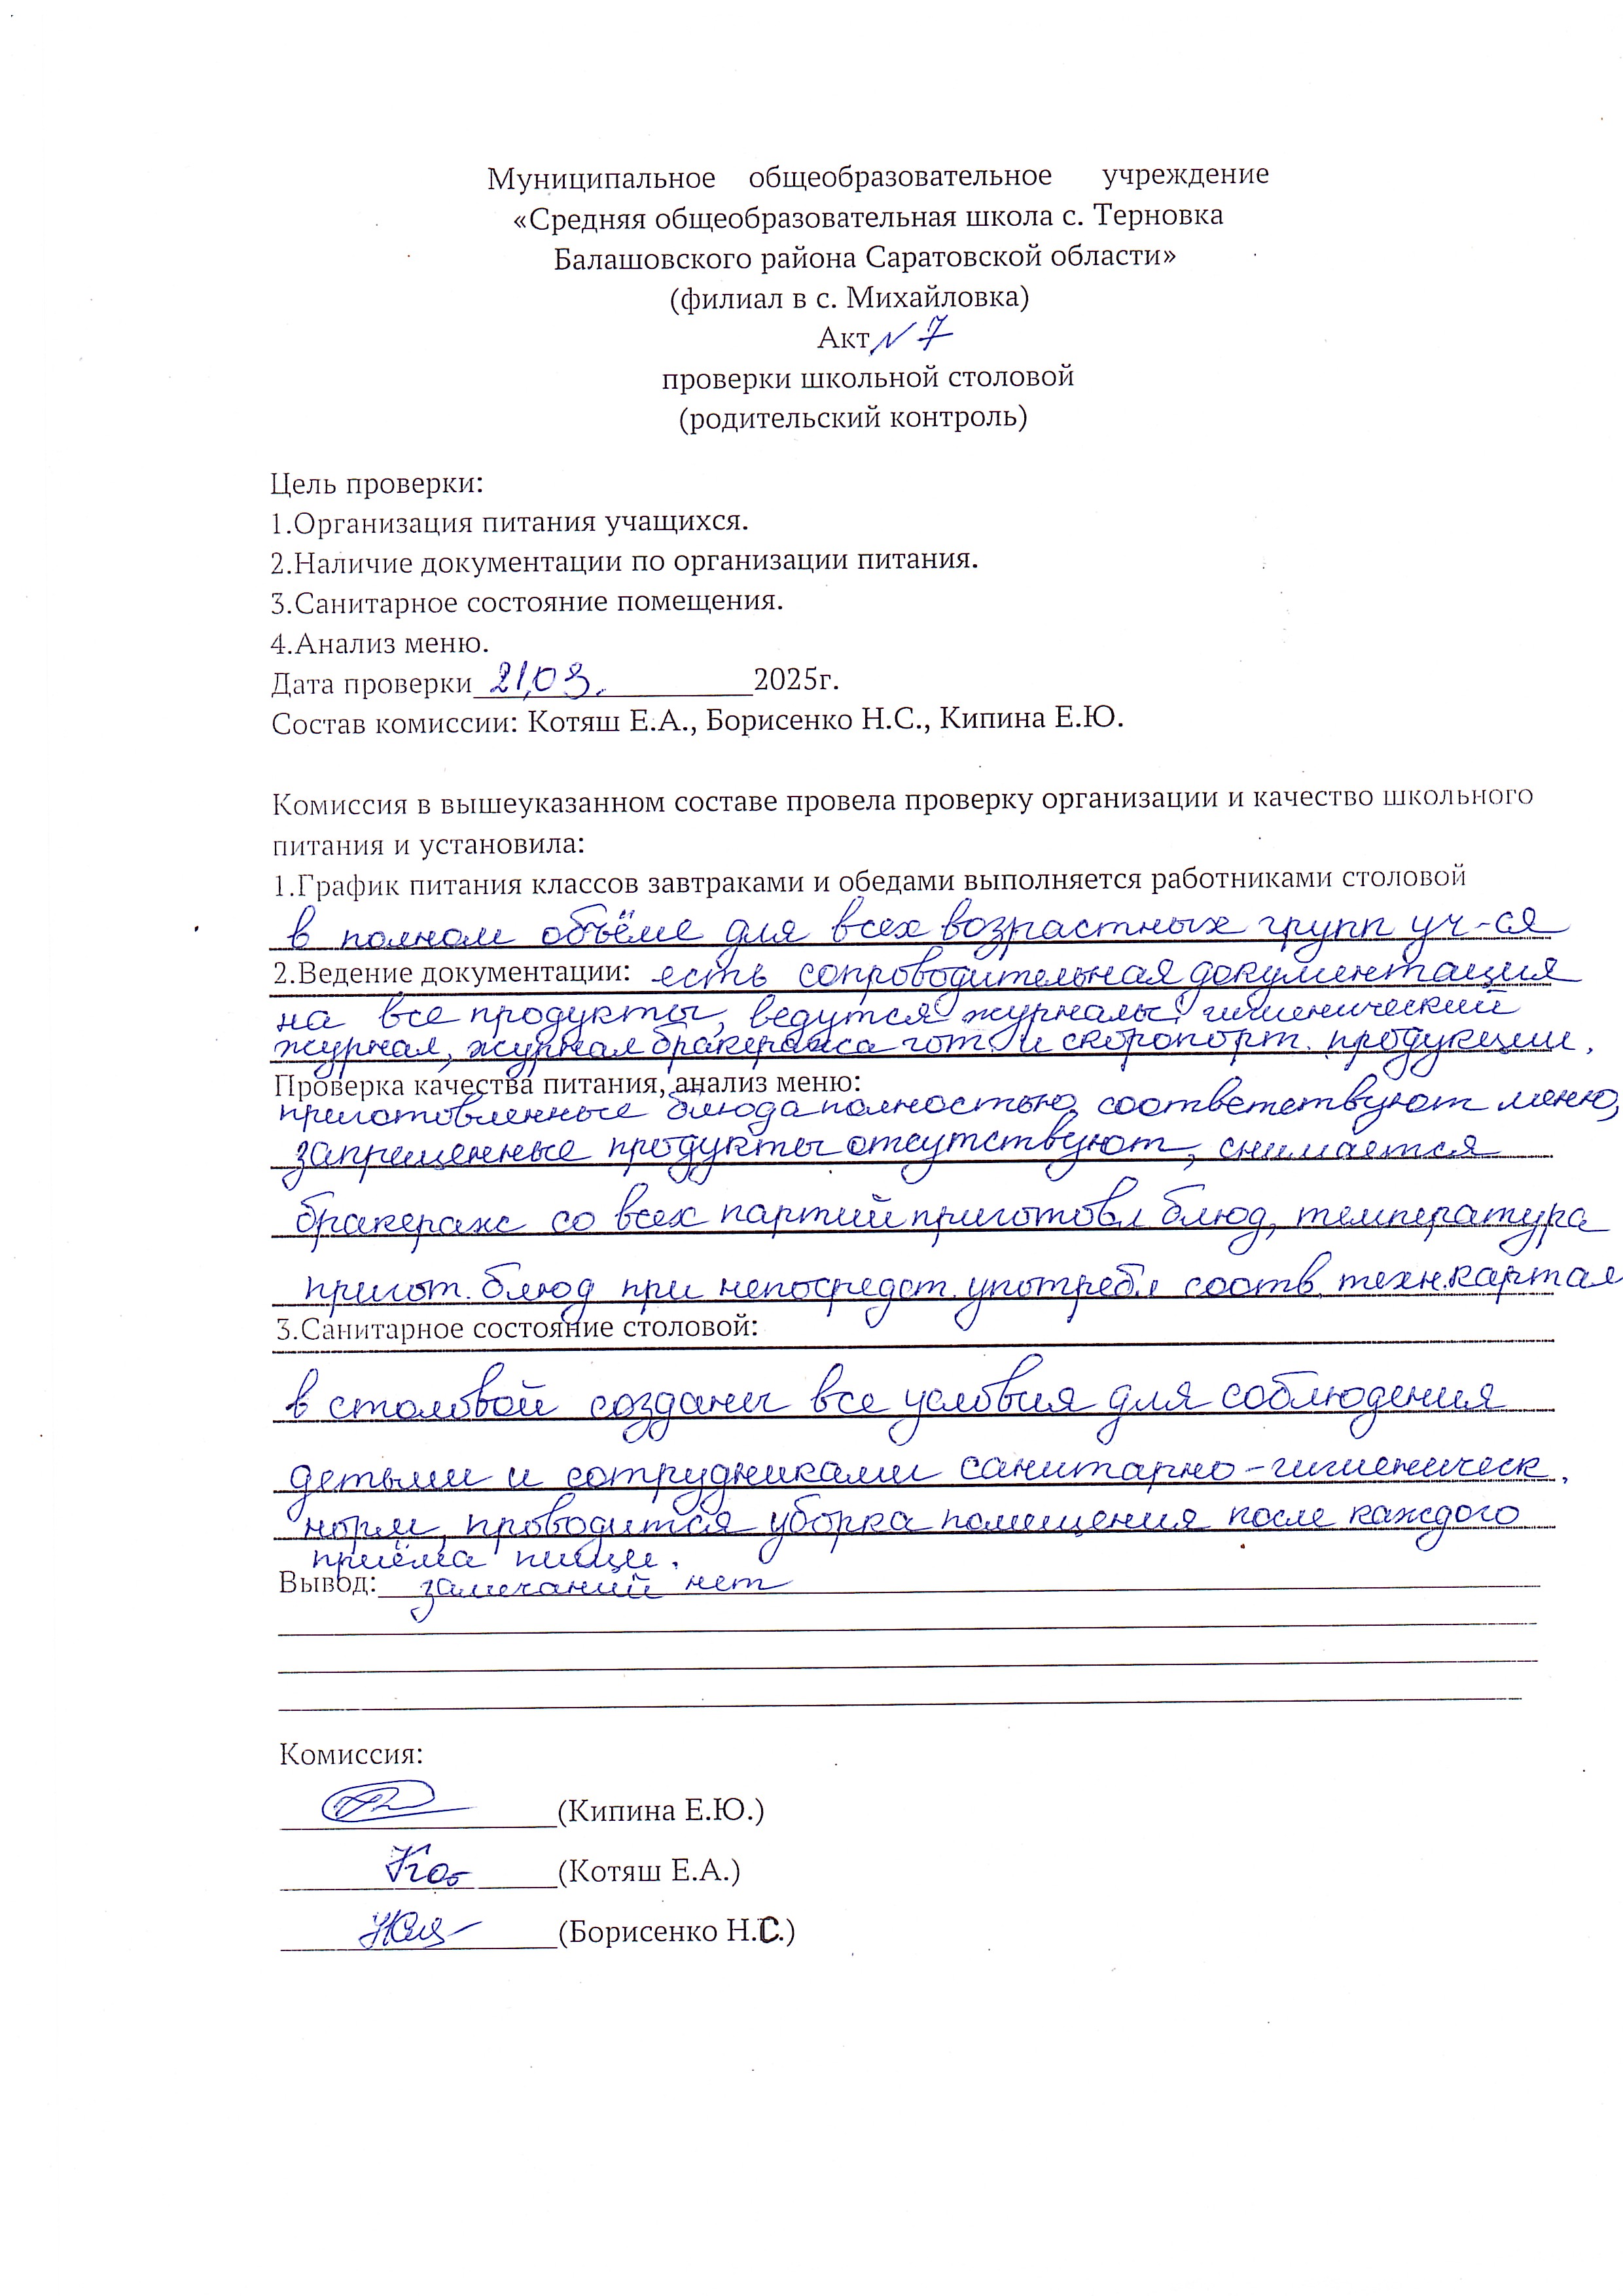 Муниципальное общеобразовательное учреждение
«Средняя общеобразовательная школа с. Терновка
Балашовского района Саратовской области»
(филиал в с. Михайловка)
Акт № 7
проверки школьной столовой
(родительский контроль)
Цель проверки:
1.Организация питания учащихся.
2.Наличие документации по организации питания.
3.Санитарное состояние помещения.
4.Анализ меню.
Дата проверки 21.03. 2025г.
Состав комиссии: Котяш Е.А., Борисенко Н.С., Кипина Е.Ю.
Комиссия в вышеуказанном составе провела проверку организации и качество школьного
питания и установила:
1.График питания классов завтраками и обедами выполняется работниками столовой
в полном объёме для всех возрастных групп уч-ся
2.Ведение документации: есть сопроводительная документация
на все продукты, ведутся журналы: гигиенический
журнал, журнал бракеража гот. и скоропорт. продукции.
Проверка качества питания, анализ меню:
приготовленные блюда полностью соответствуют меню,
запрещенные продукты отсутствуют, снимается
бракераж со всех партий приготовл блюд, температура
пригот. блюд при непосредст. употребл соотв. техн.картам
3.Санитарное состояние столовой:
в столовой созданы все условия для соблюдения
детьми и сотрудниками санитарно-гигиеническ.
норм, проводится уборка помещения после каждого
приёма пищи.
Вывод: замечаний нет
Комиссия:
(Кипина Е.Ю.)
(Котяш Е.А.)
(Борисенко Н.С.)